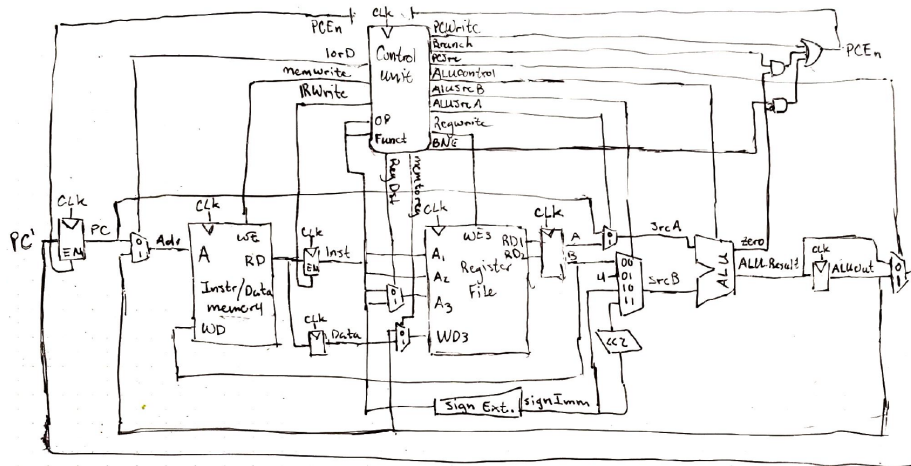 CLK
PCEn
PCWrite
Branch
PCSrc
ALUControl
ALUSrcB
ALUSrcA
Regwrite
BNE
PCEn
IorD
memwrite
IRWrite
Control
unit
OP
Funct
RegDst
memtoreg
CLK
PC'
EN
PC
0
1
Adr
CLK
A
WE
RD
Instr/Data
memory
WD
CLK
EN
Inst
CLK
Data
0
1
0
1
CLK
A1
A2
A3
WD3
WE3
RD1
RD2
Register
File
CLK
A
B
0
1
4
00
01
10
11
SrcA
SrcB
<<2
ALU
zero
ALUResult
CLK
ALUOut
0
1
Sign Ext.
signImm